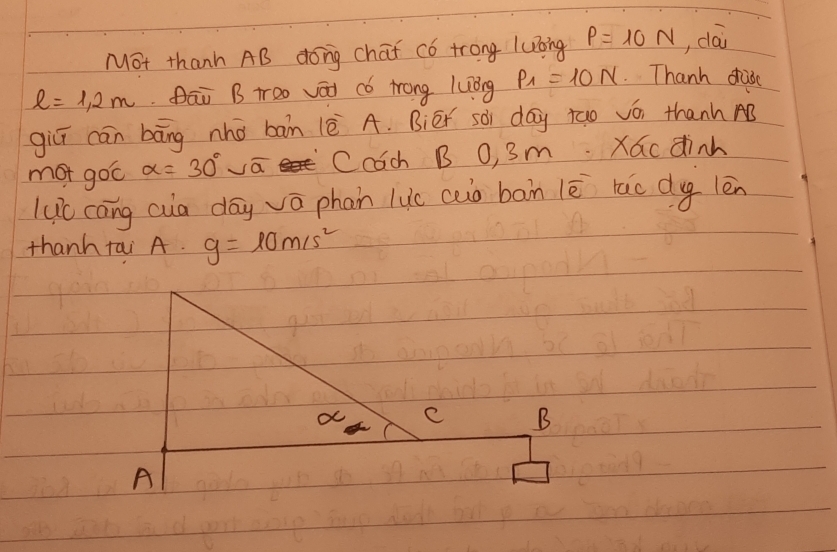 Một thanh AB đồng chất có trọng lượng P = 10 N, dài
l = 1,2 m. Đầu B treo vật có trọng lượng P1 = 10 N. Thanh được
giữ cân bằng nhờ bản lề A. Biết sợi dây tạo với thanh AB
một góc α = 30° và C cách B 0,3 m. Xác định
lực căng của dây và phản lực của bản lề tác dụng lên
thanh tại A. g = 10 m/s²
α C B
A